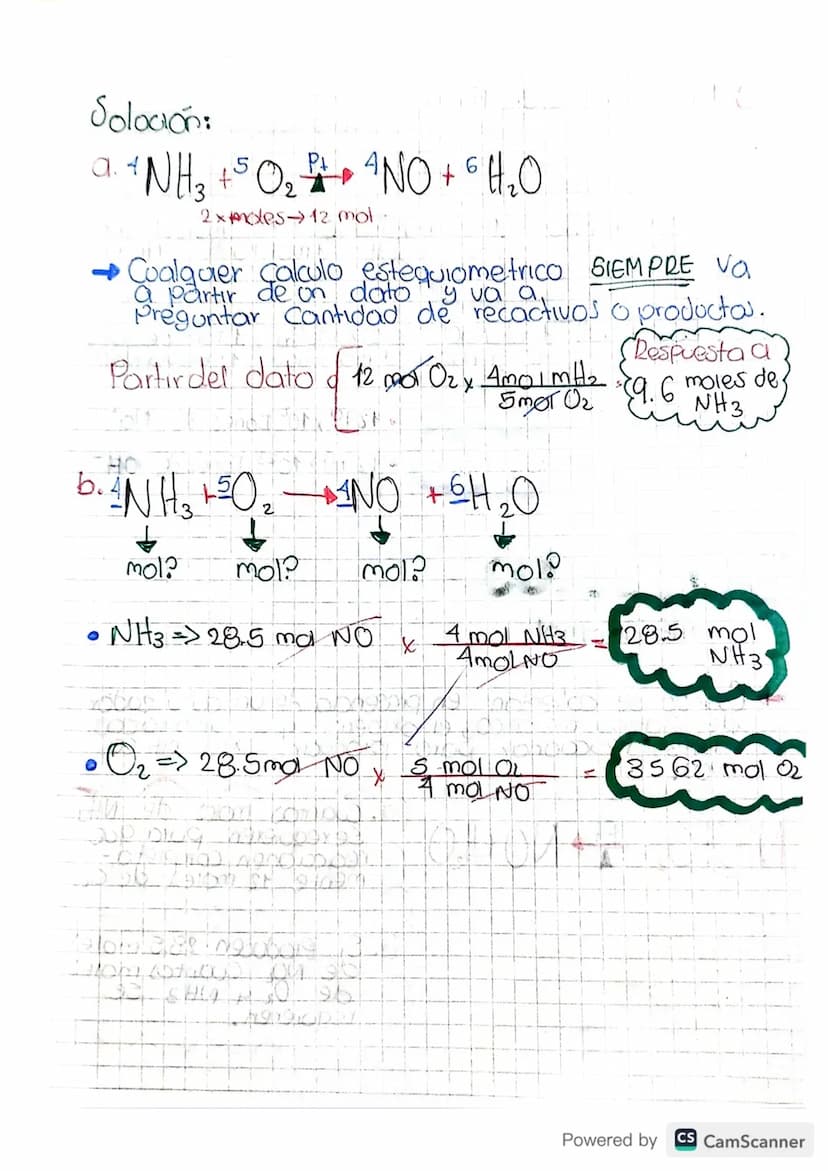 Solución:
a. 4NH3 + 5O2 Pt→ 4NO + 6H2O
2x moles→12 mol
→ Cualquier calculo estequiometrico SIEMPRE va
a partir de un dato y va a
preguntar cantidad de recactivos o productos.
Respuesta a
Partir del dato { 12 mol O2 x 4mol mH2 / 5mol O2 = 9.6 moles de NH3
b. 4NH3 + 5O2 → 4NO + 6H2O
mol? mol? mol? mol?
• NH3 => 28.5 mol NO x 4 mol NH3 / 4mol NO = 28.5 mol NH3
• O2 => 28.5mol NO x 5 mol O2 / 4 mol NO = 3562 mol O2
Powered by CS CamScanner